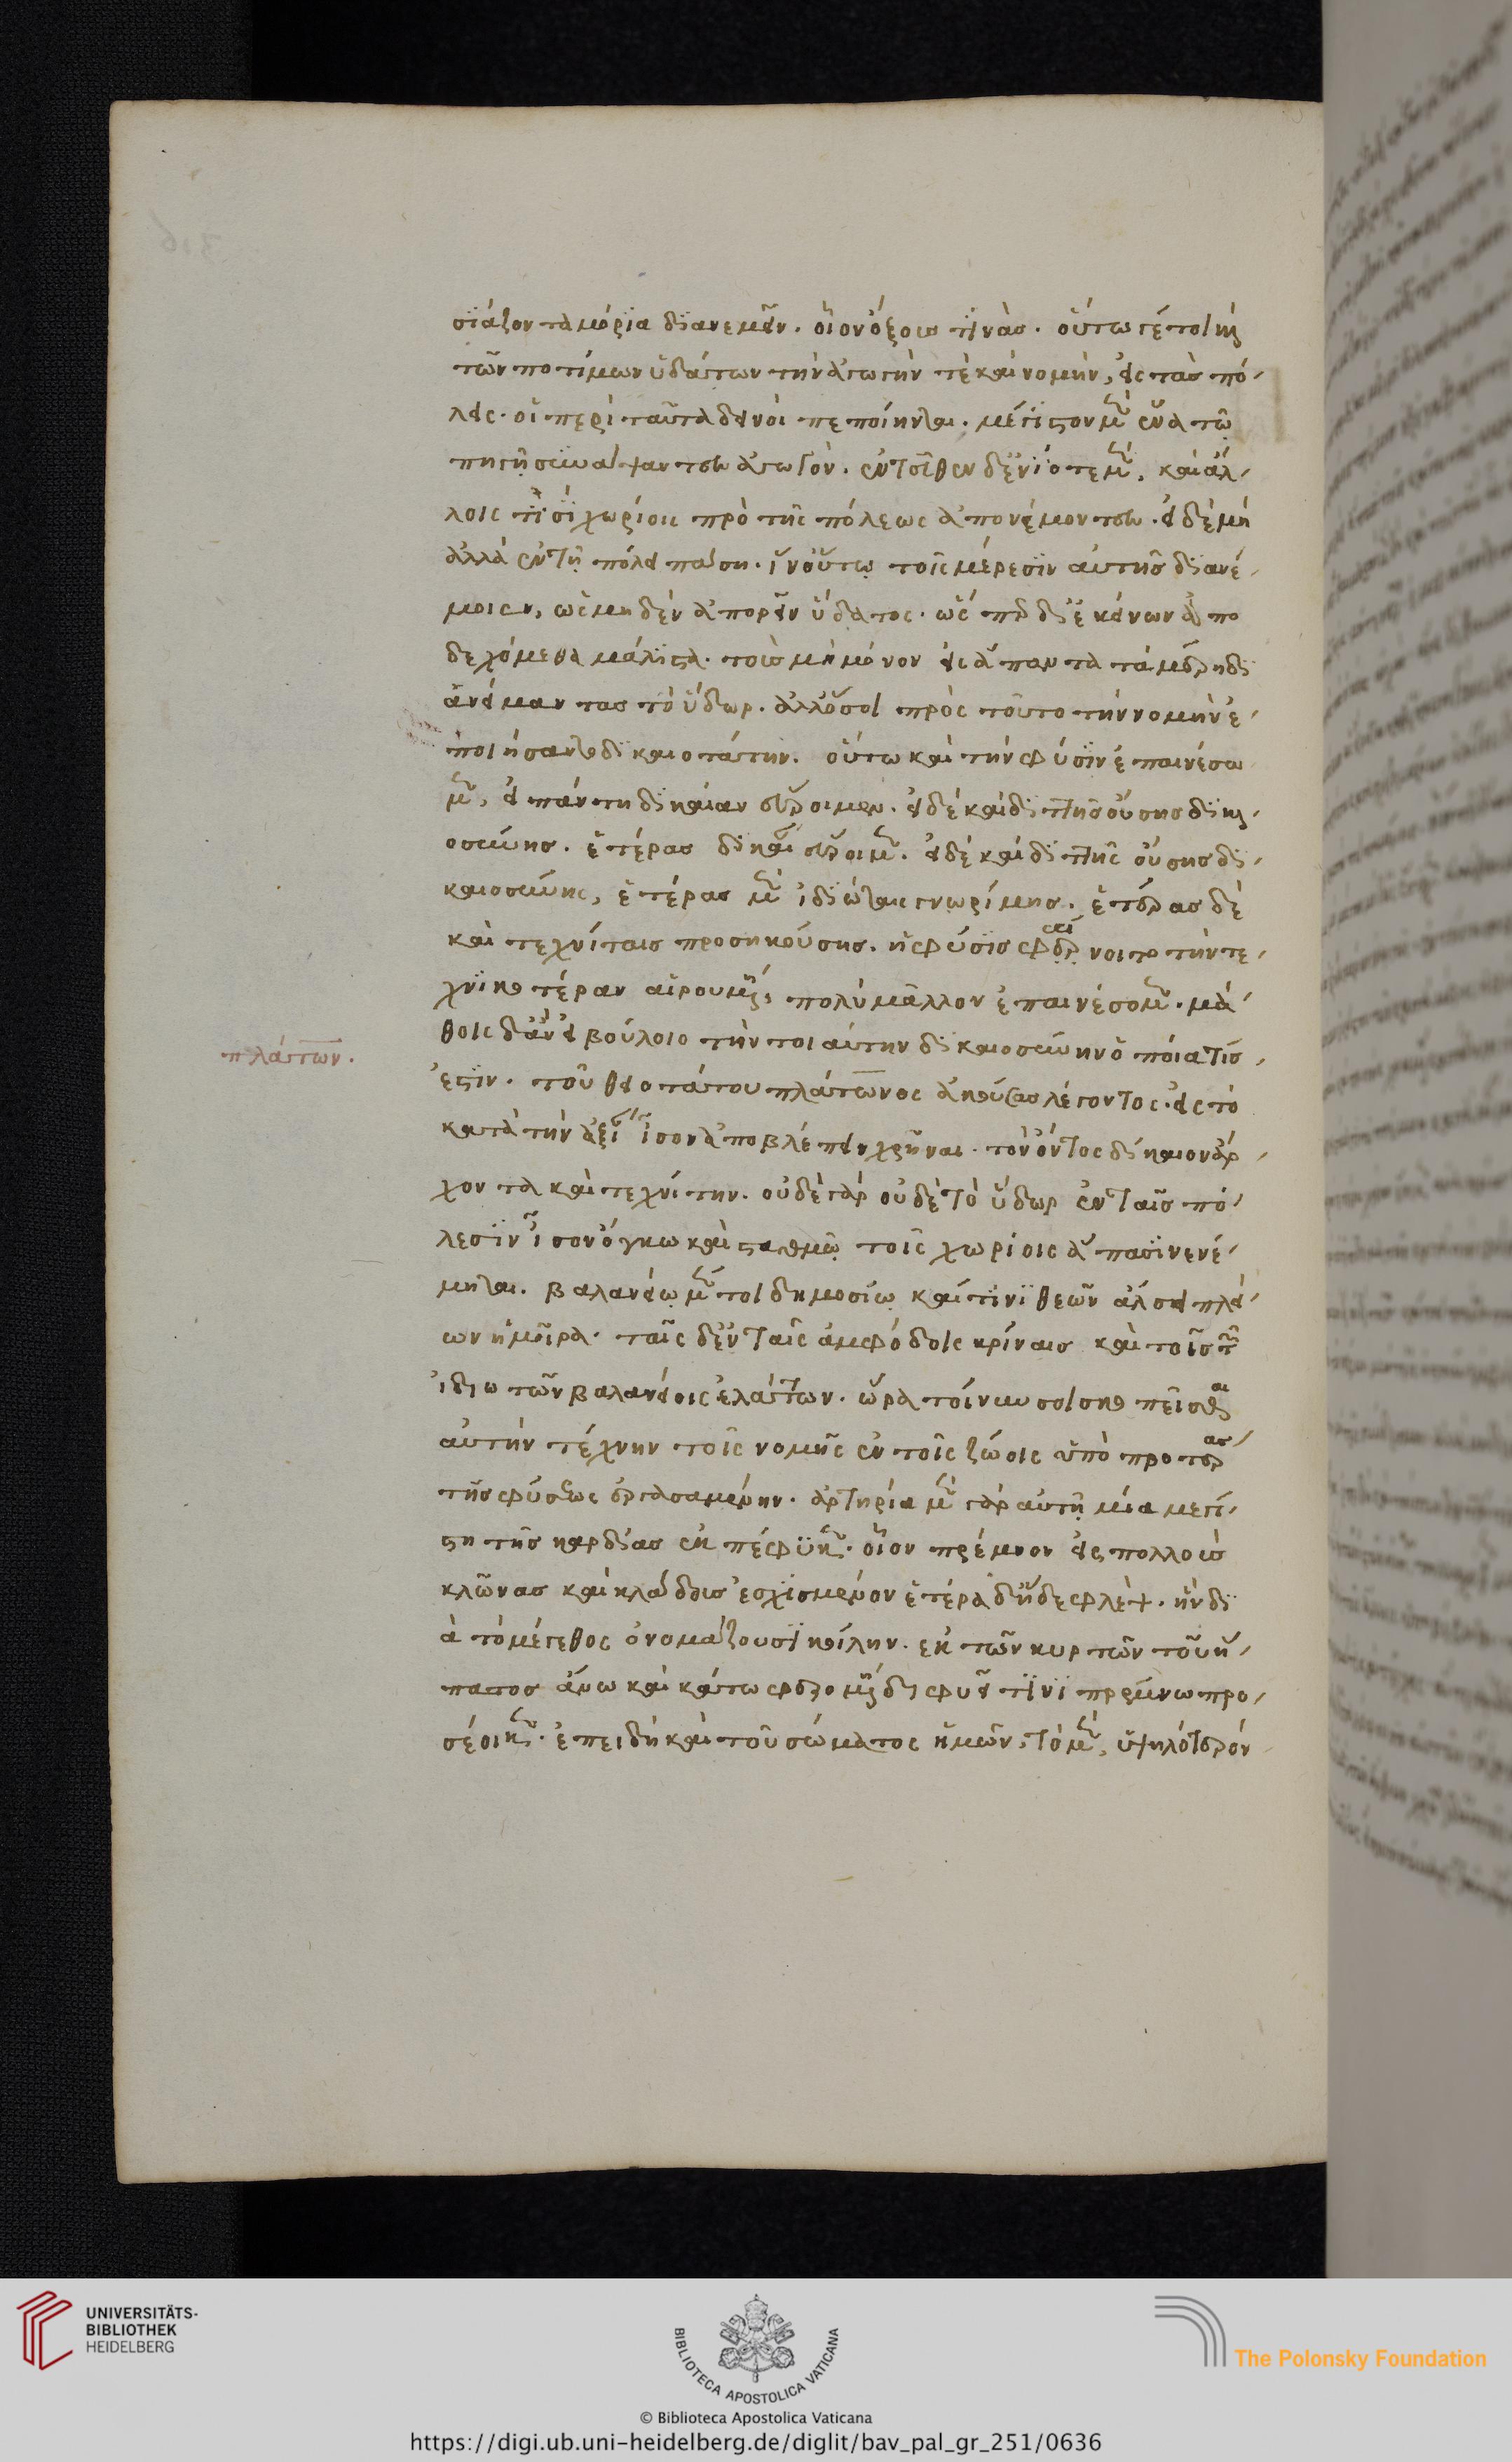 σϊάζοντα μόρϊα δϊανεμεῖν. οἷον ὀξοὺσ τϊνὰσ. οὕτω γέ τοι κỳ
τῶν ποτίμων ὑδάτων τὴν ἀγωγὴν τὲ καὶ νομὴν, εἰς τὰσ πό
λεις. οἱ περὶ ταῦτα δεινοὶ πεποίηνται. μέγιστον μ̃ ἕνα τῶ
πηγῆ συνάψαντεσ ἀγωγὸν. ἐντεῦθεν δ' ἐνίοτε μ̃, καὶ ἄλ
λοις τϊσὶ χωρίοις πρὸ τῆς πόλεως ἀπονέμοντεσ. εἰ δὲ μὴ
ἀλλὰ ἐν τῆ πόλει πάση. ἵν' οὕτω τοῖς μέρεσϊν αὐτῆσ δϊανέ
μοιεν, ὡς μηδὲν ἀπορεῖν ὕδατος. ὥσπερ δ' ἐκείνων ἀπο
δεχόμεθα μάλϊστα. τοὺσ μὴ μόνον εἰς ἅπαντα τὰ μέρη δϊ
ανείμαντασ τὸ ὕδωρ. ἀλλ' ὅσοι πρὸς τοῦτο τὴν νομὴν ἐ
ποιήσαντο δϊκαιοτάτην. οὕτω καὶ τὴν φύσϊν ἐπαινέσω
μ̃, εἰ πάντη δϊκαίαν εὕροιμεν. εἰ δὲ καὶ δϊττῆσ οὔσησ δϊκỳ
οσύνησ. ἑτέρασ δϊκαὶ εὕροιμ̃. εἰ δὲ καὶ δϊττῆς οὔσησ δϊ
καιοσύνης, ἑτέρασ μ̃ ἰδϊώταις γνωρίμησ. ἑτέρασ δὲ
καὶ τεχνίταισ προσηκούσησ. ἡ φύσϊσ φαίνοιτο τὴν τε
χνϊκοτέραν αἱρουμ̃, πολὺ μᾶλλον ἐπαινέσομ̃. μά
θοις δ' ἂν εἰ βούλοιο τὴν τοιαύτην δϊκαιοσύνην ὁποία τίσ
ἐστϊν. τοῦ θειοτάτου πλάτωνος ἀκούσασ λέγοντος. εἰς τὸ
κατὰ τὴν ἀξί ἴσον ἀποβλέπειν χρῆναι. τὸν ὄντος δίκαιον ἄρ
χοντα καὶ τεχνίτην. οὐδὲ γὰρ οὐδὲ τὸ ὕδωρ ἐν ταῖσ πό
λεσϊν ἴσον ὄγκω καὶ σταθμῶ τοῖς χωρίοις ἅπασϊ νενέ
μηται. βαλανείω μ̃ τοι δημοσίω καί τϊνϊ θεῶν ἄλσει πλεί
ων ἡ μοῖρα. ταῖς δ' ἐν ταῖς ἀμφόδοις κρίναισ καὶ τοῖσ τ
ἰδϊωτῶν βαλανείοις ἐλάττων. ὥρα τοίνυν σοι σκοπεῖσθαι
αὐτὴν τέχνην τοῖς νομῆς ἐν τοῖς ζώοις ὑπὸ προτέρασ
τῆσ φύσεως ἐργασαμένην. ἀρτηρία μ̃ γὰρ αὐτῆ μία μεγί
στη τῆσ καρδίασ ἐκπέφϋκ̃. οἷον πρέμνον εἰς πολλοὺσ
κλῶνασ καὶ κλάδουσ ἐσχϊσμένον ἑτέρα δ' ἥδε φλὲψ. ἣν δϊ
ὰ τὸ μέγεθος ὀνομάζουσϊ κοίλην. ἐκ τῶν κυρτῶν τοῦ ἥ
πατοσ ἄνω καὶ κάτω φερομ̃ διφυεῖ τϊνὶ πρέμνω προ
σέοικ̃. ἐπειδὴ καὶ τοῦ σώματος ἡμῶν, τὸ μ̃, ὑψηλότερόν
πλάττων.
UNIVERSITÄTS-
BIBLIOTHEK
HEIDELBERG
BIBLIOTECA APOSTOLICA VATICANA
The Polonsky Foundation
© Biblioteca Apostolica Vaticana
https://digi.ub.uni-heidelberg.de/diglit/bav_pal_gr_251/0636